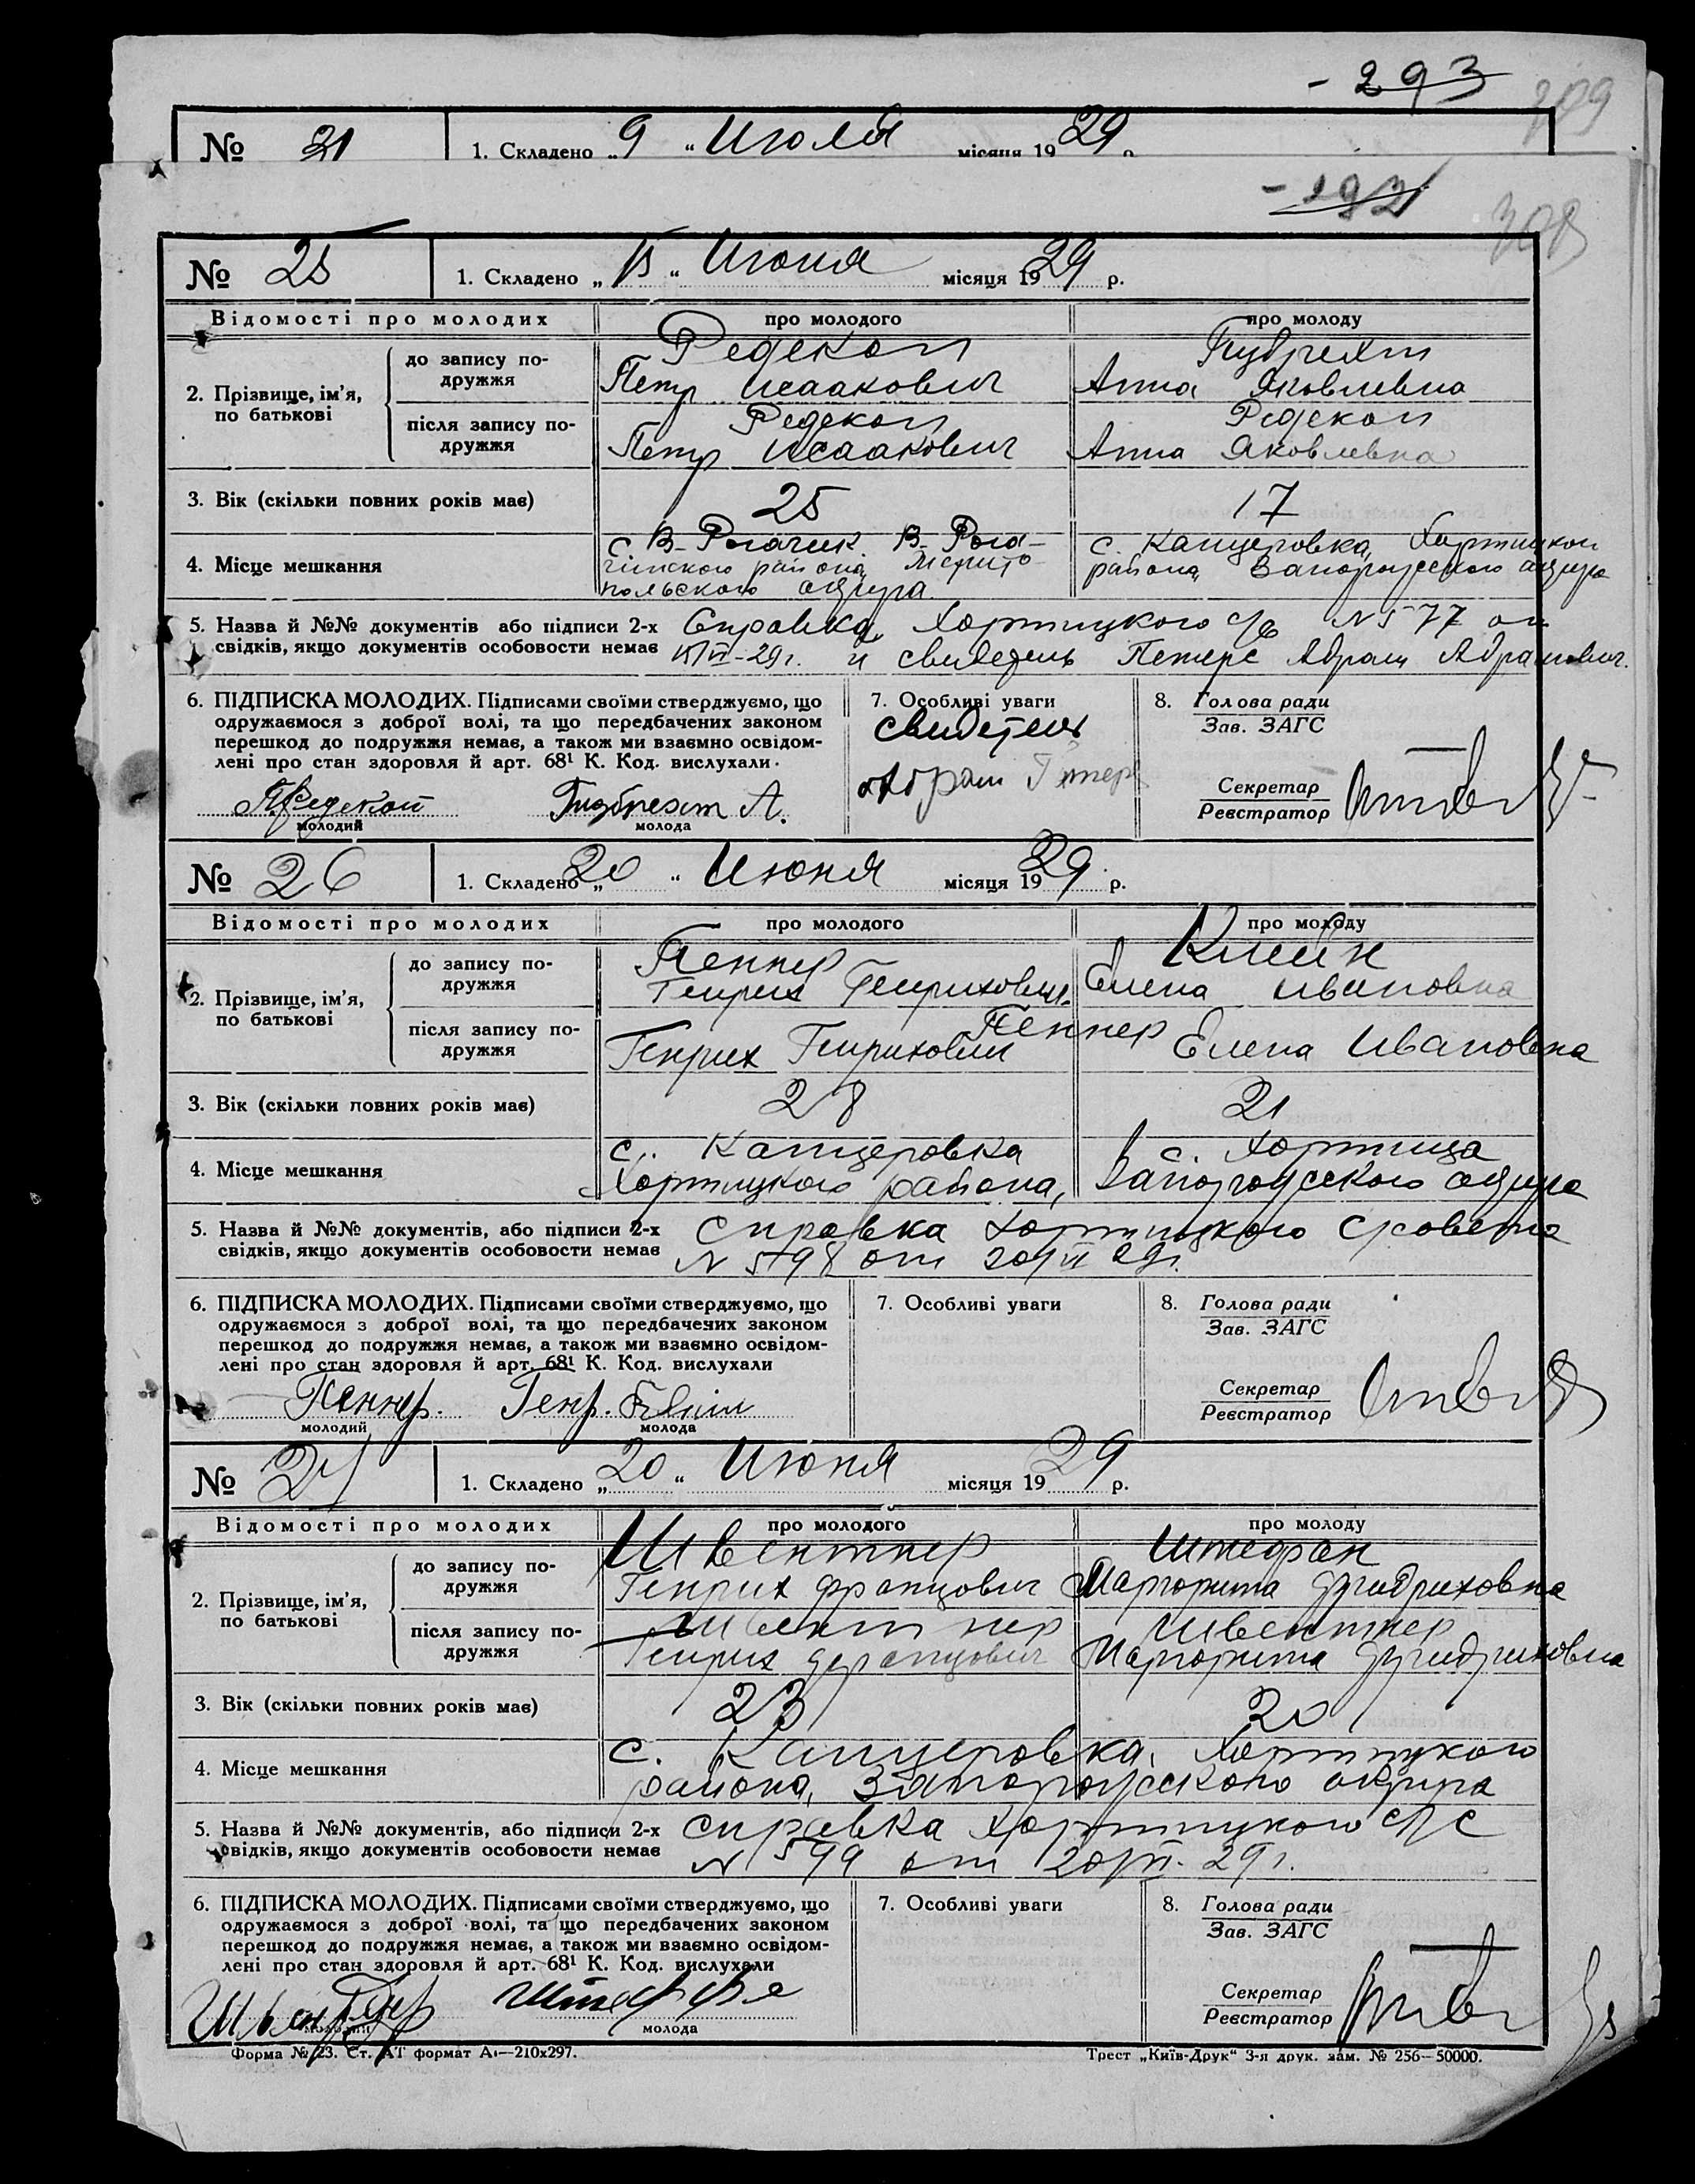 - 293
309
№ 31 1. Складено „ 9 “ Июля місяця 1929 р.
- 292
308
№ 25 1. Складено „ 15 “ Июня місяця 1929 р.
Відомості про молодих про молодого про молоду
2. Прізвище, ім’я, по батькові
до запису подружжя
Редекоп
Петр Исаакович
Гизбрехт
Анна Яковлевна
після запису подружжя
Редекоп
Петр Исаакович
Редекоп
Анна Яковлевна
3. Вік (скільки повних років має) 25 17
4. Місце мешкання
с. В-Рогачик. В-Рога-
чикского района, Мелито-
польского округа.
с. Канцеровка, Хортицкого
района, Запорожского округа
5. Назва й №№ документів або підписи 2-х Справка Хортицкого с/с N 577 от
свідків, якщо документів особовости немає 15/VI-29г. и свидетель Петерс Абрам Абрамович.
6. ПІДПИСКА МОЛОДИХ. Підписами своїми стверджуємо, що
одружаємося з доброї волі, та що передбачених законом
перешкод до подружжя немає, а також ми взаємно освідом-
лені про стан здоровля й арт. 68¹ К. Код. вислухали.
П. Редекоп Гизбрехт А.
молодий молода
7. Особливі уваги
свидетель
Абрам Петерс
8. Голова ради
Зав. ЗАГС
Секретар
Реєстратор
№ 26 1. Складено „ 20 “ Июня місяця 1929 р.
Відомості про молодих про молодого про молоду
2. Прізвище, ім’я, по батькові
до запису подружжя
Пеннер
Генрих Генрихович
Клейн
Елена Ивановна
після запису подружжя
Пеннер
Генрих Генрихович Елена Ивановна
3. Вік (скільки повних років має) 28 21
4. Місце мешкання
с. Канцеровка с. Хортица
Хортицкого района, Запорожского округа
5. Назва й №№ документів, або підписи 2-х Справка Хортицкого с/совета
свідків, якщо документів особовости немає N 598 от 20/VI 29г.
6. ПІДПИСКА МОЛОДИХ. Підписами своїми стверджуємо, що
одружаємося з доброї волі, та що передбачених законом
перешкод до подружжя немає, а також ми взаємно освідом-
лені про стан здоровля й арт. 68¹ К. Код. вислухали
Пеннер. Генр.
молодий молода
7. Особливі уваги
8. Голова ради
Зав. ЗАГС
Секретар
Реєстратор
№ 27 1. Складено „ 20 “ Июня місяця 1929 р.
Відомості про молодих про молодого про молоду
2. Прізвище, ім’я, по батькові
до запису подружжя
Швентнер
Генрих Францович
Штефан
Маргорита Фридриховна
після запису подружжя
Швентнер
Генрих Францович
Швентнер
Маргорита Фридриховна
3. Вік (скільки повних років має) 23 20
4. Місце мешкання
с. Канцеровка, Хортицкого
района, Запорожского округа
5. Назва й №№ документів, або підписи 2-х справка Хортицкого с/с
свідків, якщо документів особовости немає N 599 от 20/VI-29г.
6. ПІДПИСКА МОЛОДИХ. Підписами своїми стверджуємо, що
одружаємося з доброї волі, та що передбачених законом
перешкод до подружжя немає, а також ми взаємно освідом-
лені про стан здоровля й арт. 68¹ К. Код. вислухали
молодий молода
7. Особливі уваги
8. Голова ради
Зав. ЗАГС
Секретар
Реєстратор
Форма № 23. Ст. АТ формат А₄—210х297.
Трест „Київ-Друк“ 3-я друк. зам. № 256—50000.